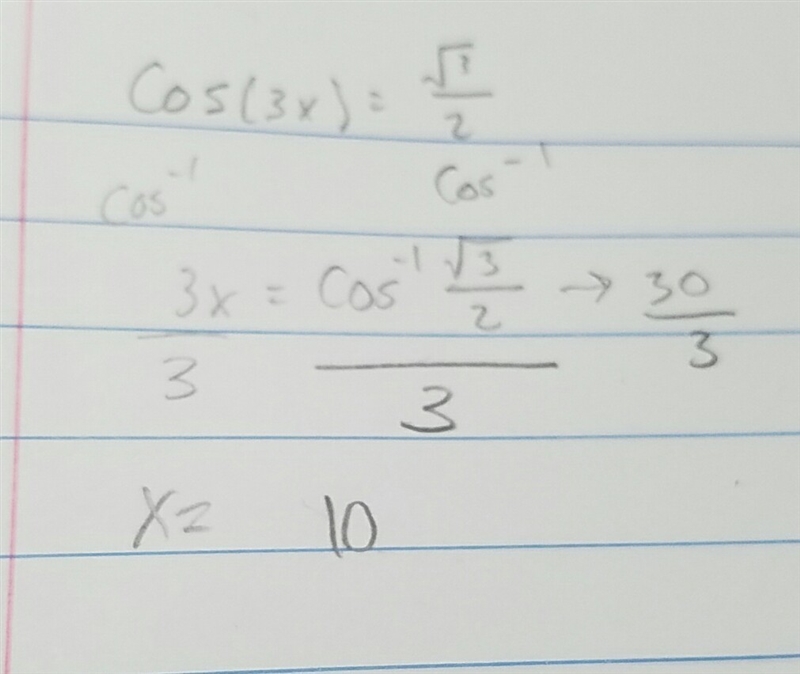 Cos(3x) = √3/2
Cos⁻¹ Cos⁻¹
3x/3 = Cos⁻¹ √3/2 / 3 → 30/3
x = 10